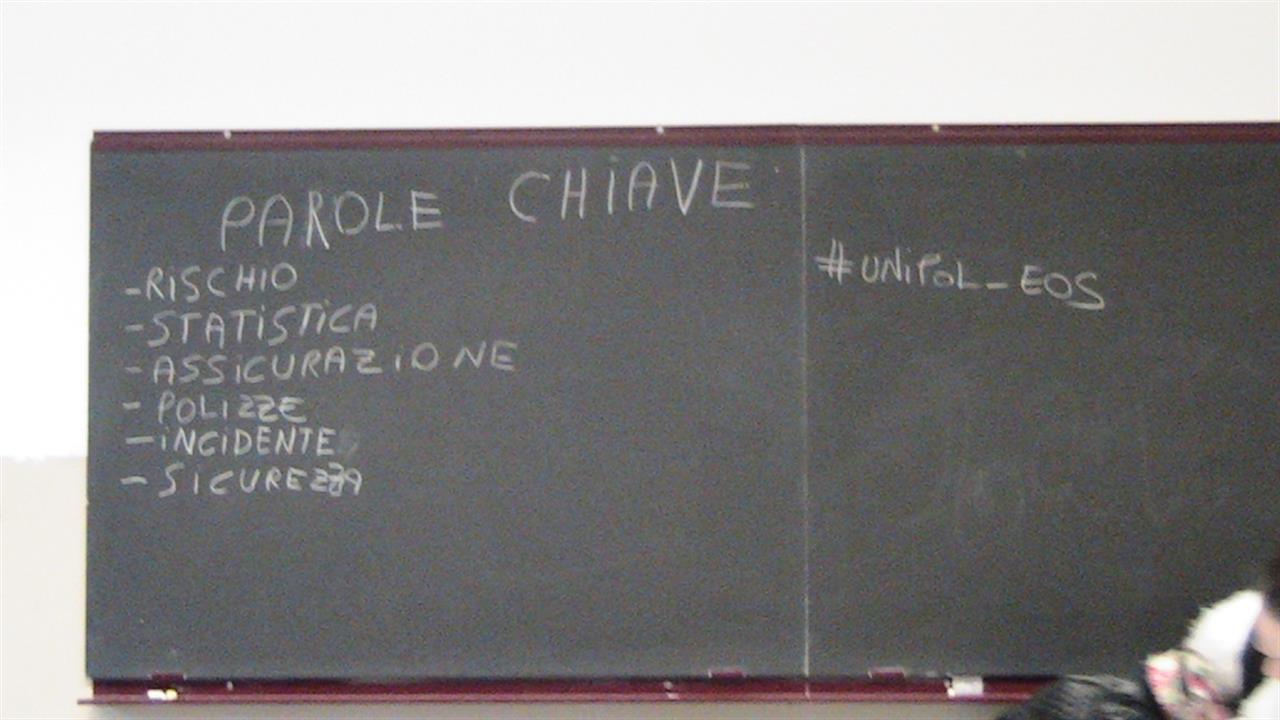 PAROLE CHiAVE
-RiSCHIO
-STATiSTiCA
-ASSiCURAZiONE
- POLIZZE
-iNCiDENTE
- SiCUREZZA
#UNiPOL_EOS